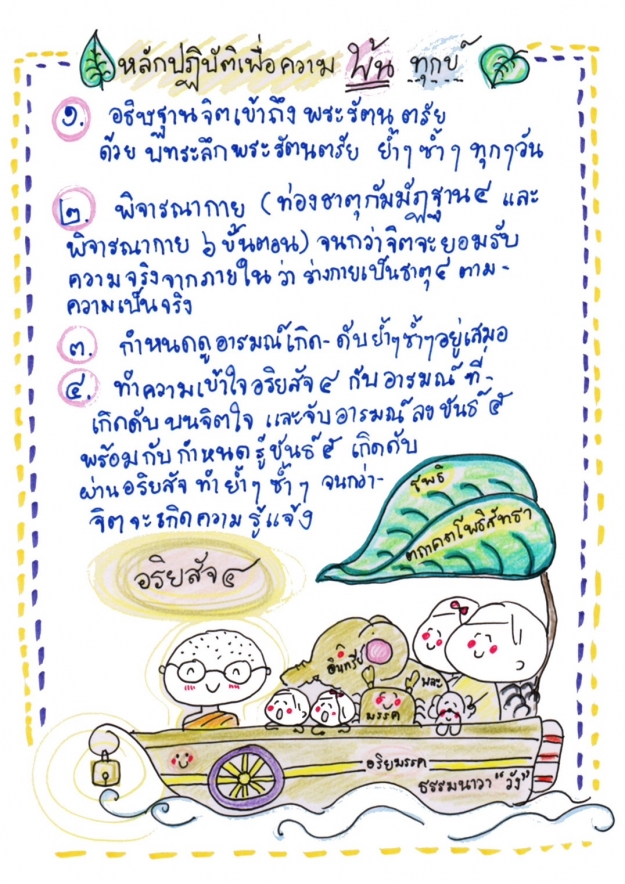 หลักปฏิบัติเพื่อความ พ้น ทุกข์
๑. อธิษฐานจิตเข้าถึงพระรัตนตรัย
ด้วย บทระลึกพระรัตนตรัย ย้ำๆ ซ้ำๆ ทุกๆวัน
๒. พิจารณากาย (ท่องธาตุกัมมัฏฐาน ๔ และ
พิจารณากาย ๖ ขั้นตอน) จนกว่าจิตจะยอมรับ
ความจริงจากภายใน ว่า ร่างกายเป็นธาตุ ๔ ตาม-
ความเป็นจริง
๓. กำหนดดูอารมณ์เกิด-ดับย้ำๆซ้ำๆอยู่เสมอ
๔. ทำความเข้าใจอริยสัจ ๔ กับอารมณ์ ที่-
เกิดดับบนจิตใจ และจับอารมณ์ลงขันธ์ ๕
พร้อมกับ กำหนดรู้ขันธ์ ๕ เกิดดับ
ผ่านอริยสัจ ทำย้ำๆ ซ้ำๆ จนกว่า-
จิตจะเกิดความรู้แจ้ง
โพธิ
ตถาคตโพธิสัทธา
อริยสัจ ๔
อินทรีย์
พละ
มรรค
อริยมรรค
ธรรมนาวา "วัง"